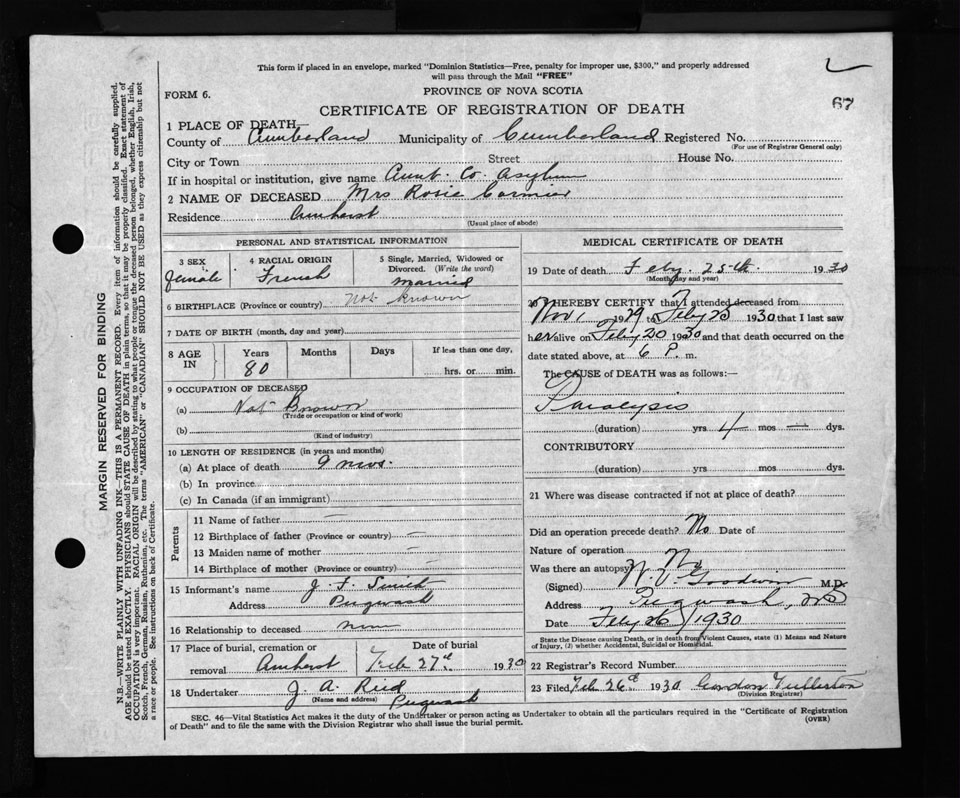 This form if placed in an envelope, marked "Dominion Statistics—Free, penalty for improper use, $300," and properly addressed
will pass through the Mail "FREE"
FORM 6.
PROVINCE OF NOVA SCOTIA
67
CERTIFICATE OF REGISTRATION OF DEATH
1 PLACE OF DEATH—
County of Cumberland Municipality of Cumberland Registered No.
(For use of Registrar General only)
City or Town Street House No.
If in hospital or institution, give name Co. Asylum
2 NAME OF DECEASED Mrs Rosie Cormier
Residence Amherst
(Usual place of abode)
PERSONAL AND STATISTICAL INFORMATION
3 SEX 4 RACIAL ORIGIN 5 Single, Married, Widowed or
Divorced. (Write the word)
female French Married
6 BIRTHPLACE (Province or country) Not Known
7 DATE OF BIRTH (month, day and year)
8 AGE IN Years Months Days If less than one day,
80 hrs. or min.
9 OCCUPATION OF DECEASED
(a) Not Known
(Trade or occupation or kind of work)
(b)
(Kind of industry)
10 LENGTH OF RESIDENCE (in years and months)
(a) At place of death 9 mos.
(b) In province
(c) In Canada (if an immigrant)
Parents
11 Name of father —
12 Birthplace of father (Province or country) —
13 Maiden name of mother —
14 Birthplace of mother (Province or country) —
15 Informant's name J. F. Smith
Address Pugwash
16 Relationship to deceased
17 Place of burial, cremation or Date of burial
removal Amherst Feb 27th 1930
18 Undertaker J. A. Reid
(Name and address) Pugwash
MEDICAL CERTIFICATE OF DEATH
19 Date of death Feby. 25th. 1930
(Month, day and year)
20 I HEREBY CERTIFY that I attended deceased from
Nov 1 1929 to Feby 25 1930 that I last saw
her alive on Feby 20 1930 and that death occurred on the
date stated above, at 6 P. m.
The CAUSE of DEATH was as follows:—
Paralysis
(duration) yrs 4 mos — dys.
CONTRIBUTORY
(duration) yrs mos dys.
21 Where was disease contracted if not at place of death?
Did an operation precede death? No Date of
Nature of operation
Was there an autopsy No
(Signed) Goodwin M.D.
Address Pugwash, NS
Date Feby 26/1930
State the Disease causing Death, or in death from Violent Causes, state (1) Means and Nature
of Injury, (2) whether Accidental, Suicidal or Homicidal.
22 Registrar's Record Number
23 Filed Feb 26th 1930 Gordon Fullerton
(Division Registrar)
SEC. 46—Vital Statistics Act makes it the duty of the Undertaker or person acting as Undertaker to obtain all the particulars required in the "Certificate of Registration
of Death" and to file the same with the Division Registrar who shall issue the burial permit.
(OVER)
MARGIN RESERVED FOR BINDING
N.B.—WRITE PLAINLY WITH UNFADING INK—THIS IS A PERMANENT RECORD. Every item of information should be carefully supplied.
AGE should be stated EXACTLY. PHYSICIANS should STATE CAUSE OF DEATH in plain terms, so that it may be properly classified. Exact statement of
OCCUPATION is very important. RACIAL ORIGIN will be described by stating to what people or tongue the deceased person belonged, whether English, Irish,
Scotch, French, German, Russian, Ruthenian, etc. The terms "AMERICAN" or "CANADIAN" SHOULD NOT BE USED as they express citizenship but not
a race or people. See instructions on back of Certificate.